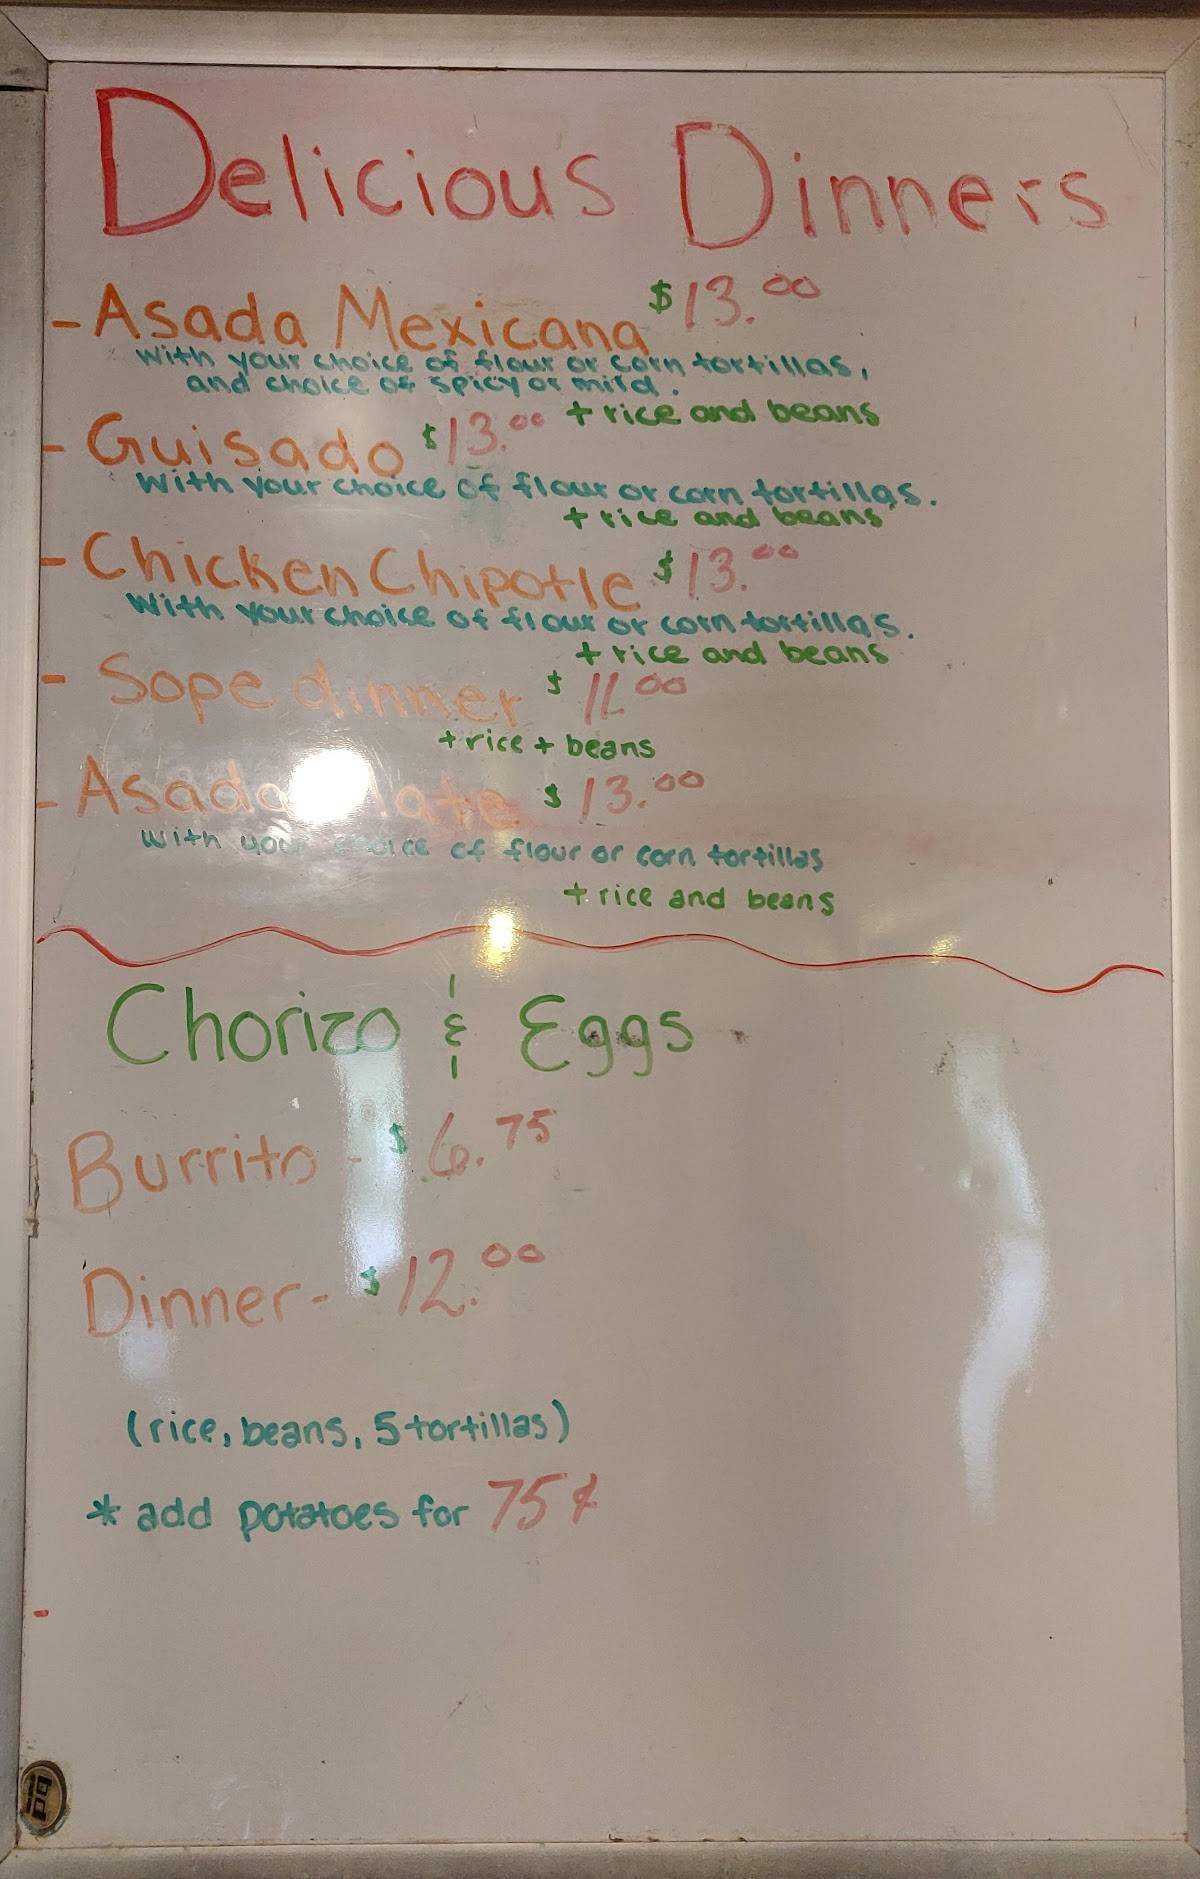 Delicious Dinners
- Asada Mexicana $13.00
with your choice of flour or corn tortillas,
and choice of spicy or mild.
+ rice and beans
- Guisado $13.00
with your choice of flour or corn tortillas.
+ rice and beans
- Chicken Chipotle $13.00
with your choice of flour or corn tortillas.
+ rice and beans
- Sope dinner $11.00
+ rice + beans
- Asada $13.00
with your choice of flour or corn tortillas
+ rice and beans
Chorizo & Eggs
Burrito - $6.75
Dinner - $12.00
(rice, beans, 5 tortillas)
* add potatoes for 75¢